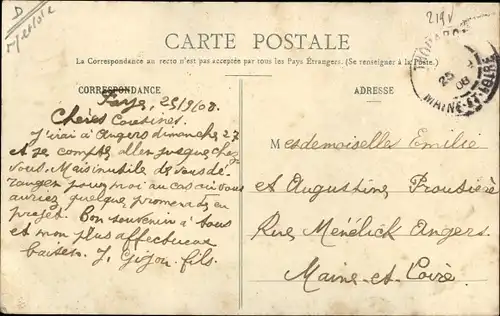 D
M et Loire
219V
CARTE POSTALE
La Correspondance au recto n'est pas acceptée par tous les Pays Étrangers. (Se renseigner à la Poste.)
CORRESPONDANCE
ADRESSE
25
08
MAINE-ET-LOIRE
Faye, 25/9/08.
Chères Cousines.
J'irai à Angers dimanche 27
et je compte aller jusque chez
vous. Mais inutile de vous dé-
ranger pour moi au cas où vous
auriez quelque promenade en
projet. Bon souvenir à tous
et mon plus affectueux
baiser. J. Gujon fils.
Mesdemoiselles Emilie
et Augustine Proustière
Rue Ménélick Angers
Maine-et-Loire